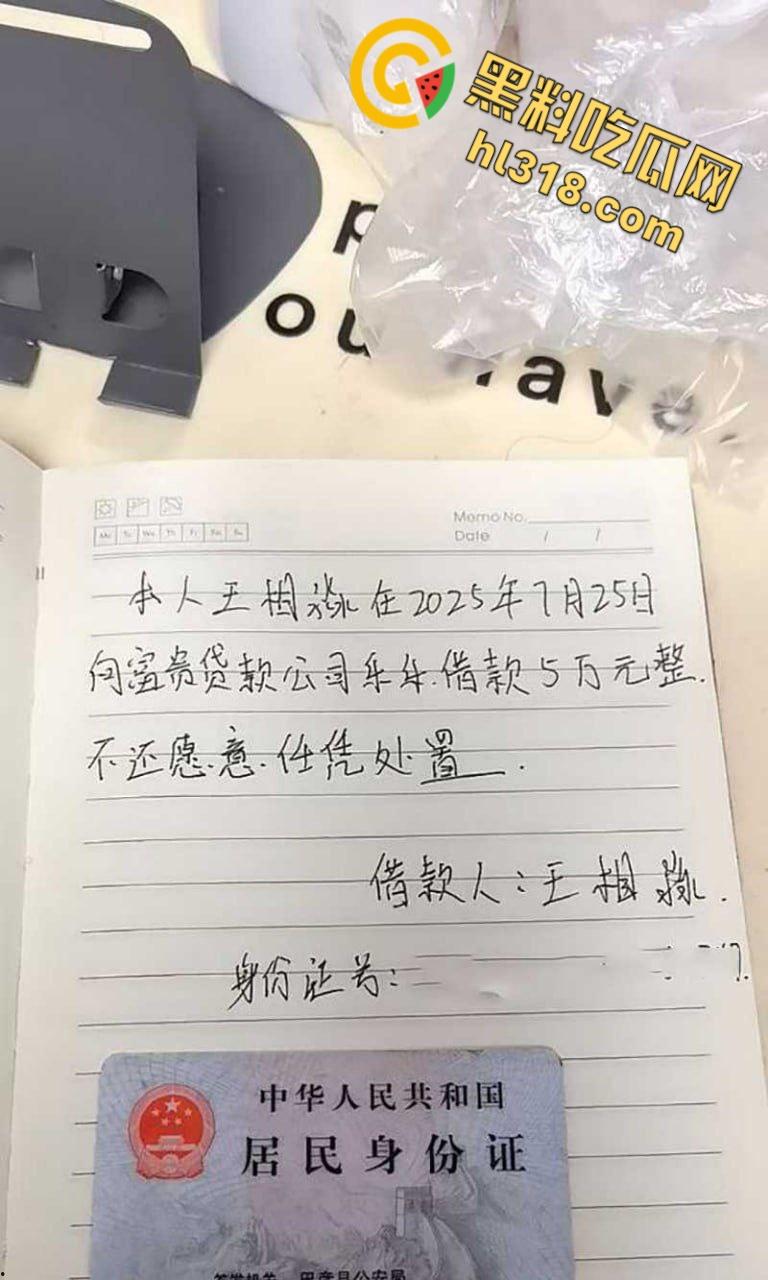 黑料吃瓜网
hl318.com
p
ou
rave.
Memo No.
Mo Tu We Th Fr Sa Su
Date / /
本人王相淼在2025年7月25日
向富贵贷款公司乐乐.借款5万元整.
不还愿意.任凭处置.
借款人:王相淼.
身份证号:
中华人民共和国
居民身份证
签发机关
县公安局